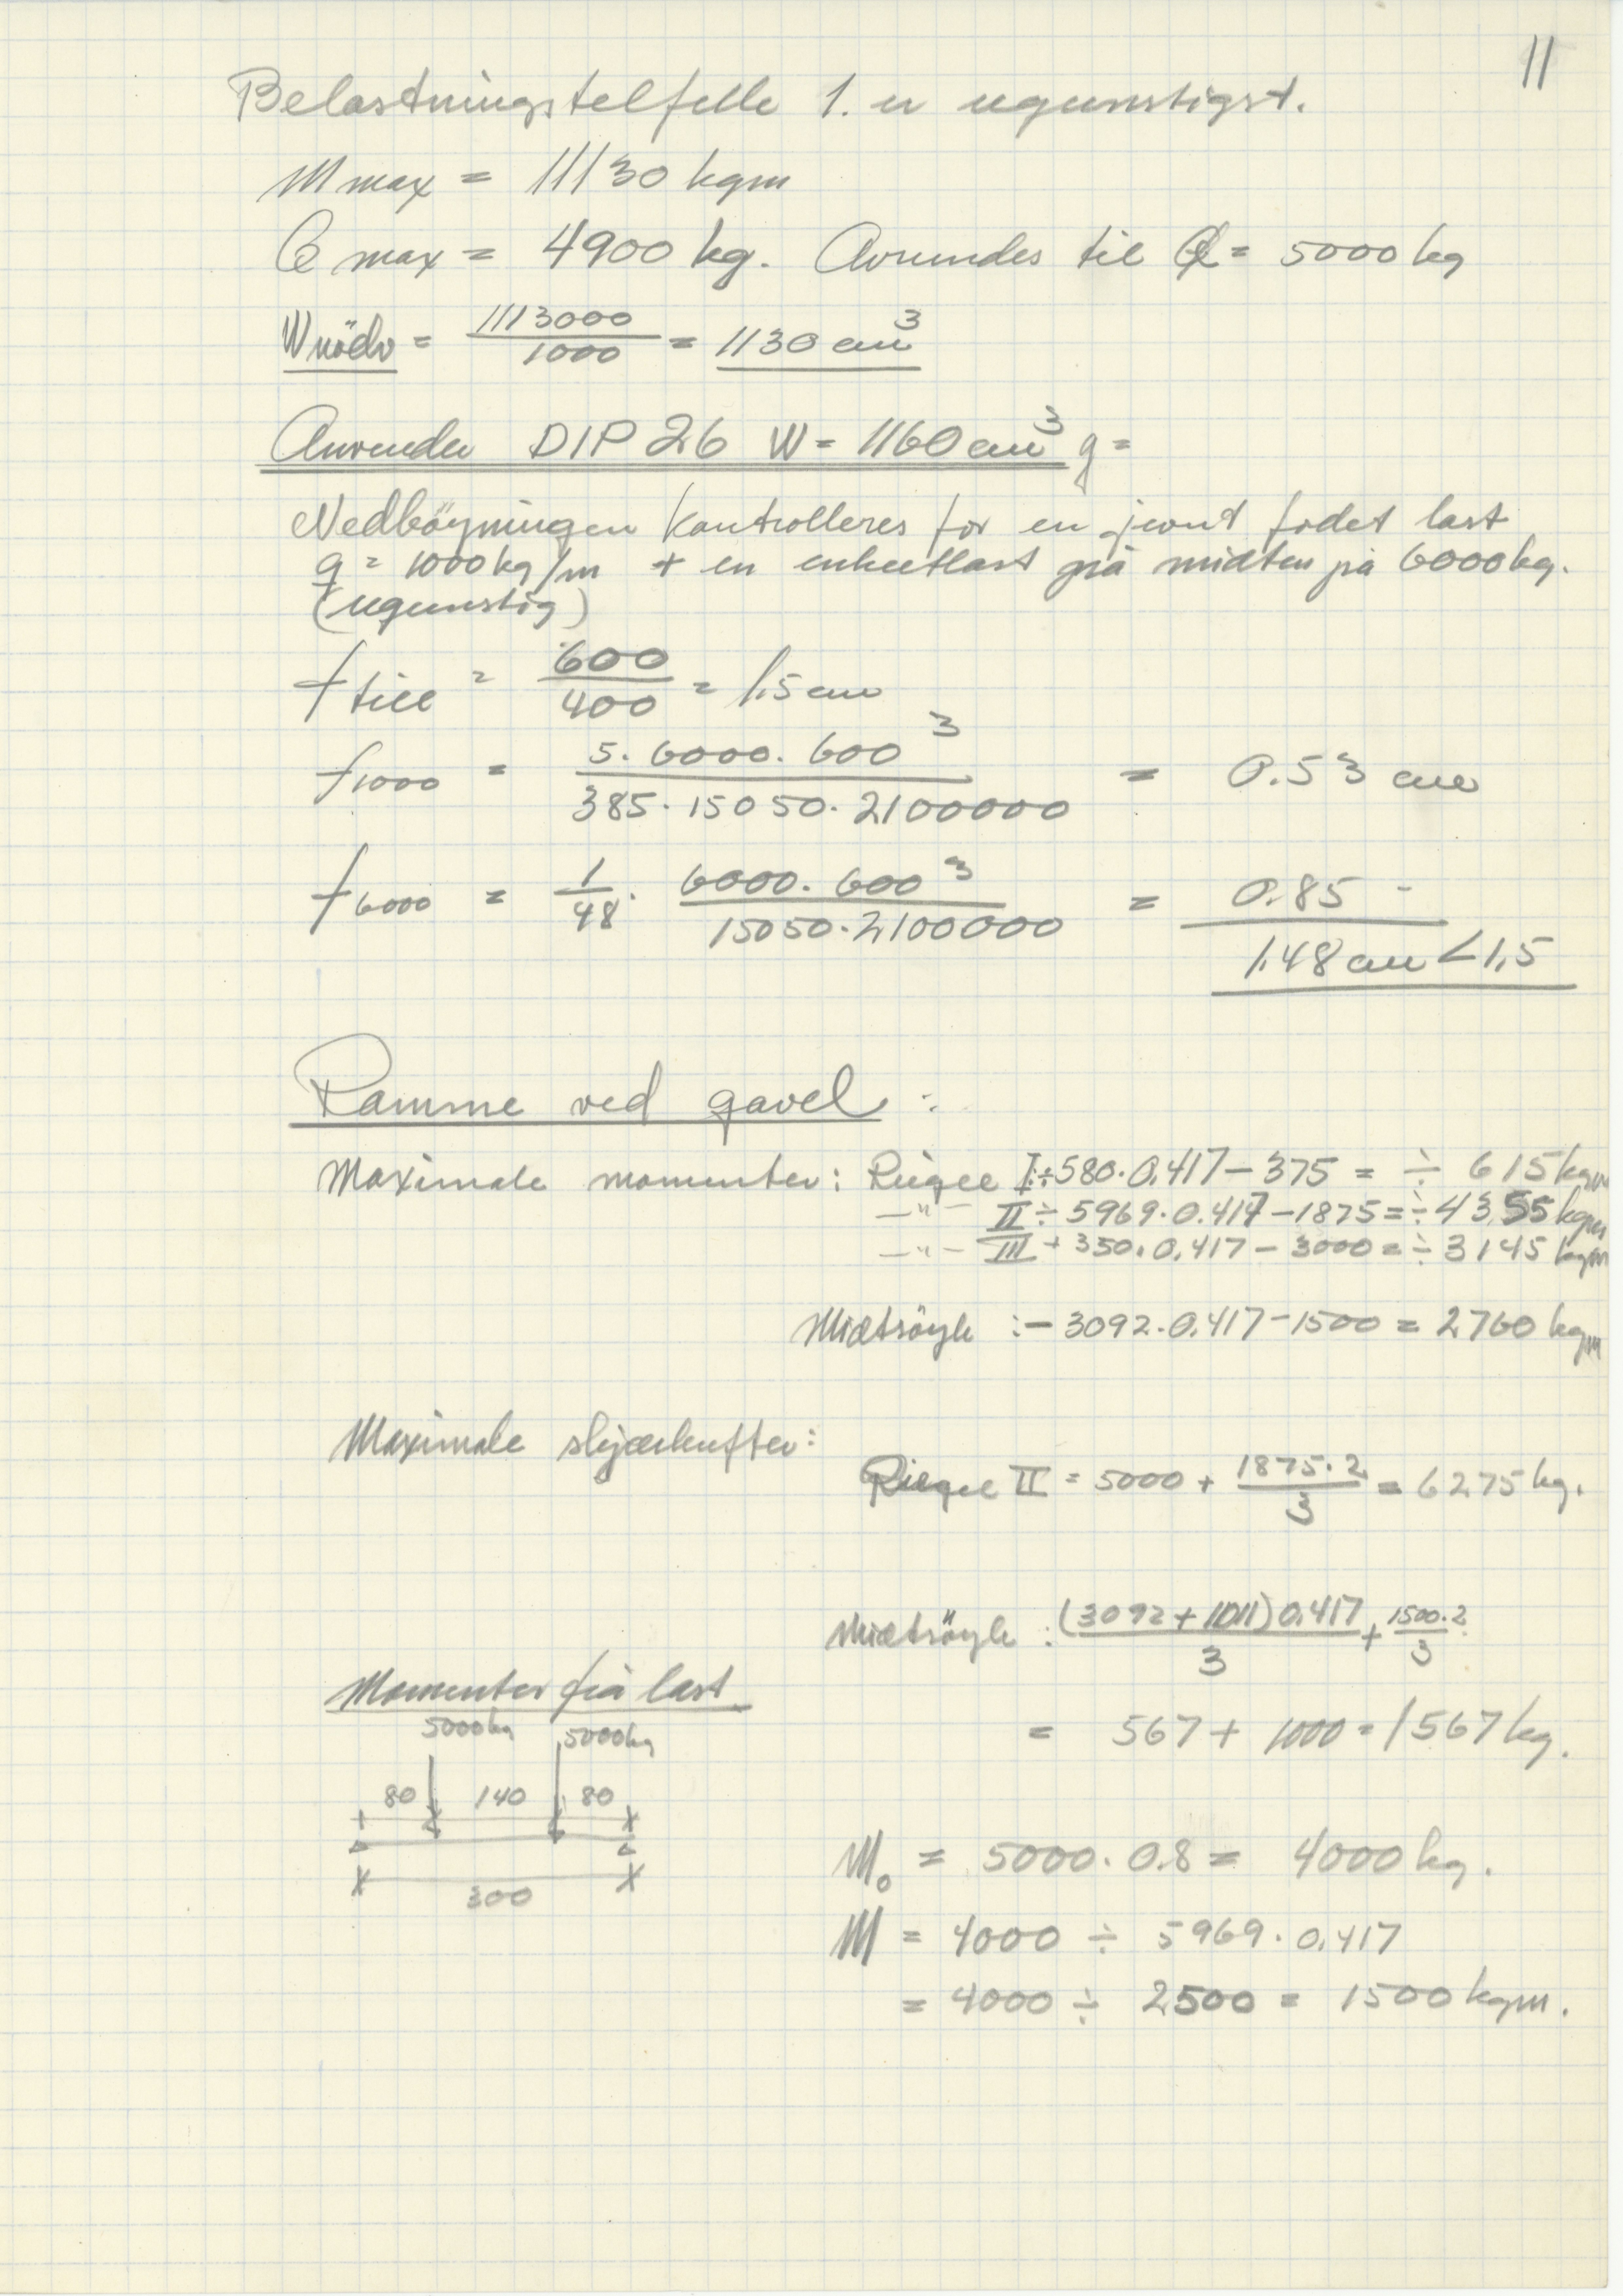 11
Belastningstelfelle 1. er ugunstigst.
M max = 11130 kgm
Q max = 4900 kg. Avrundes til Q = 5000 kg
W nödv = 1113000 / 1000 = 1130 cm³
Anvender DIP 26 W = 1160 cm³ g =
Nedböyningen kontrolleres for en jevnt fodet last
q = 1000 kg/m + en enkeltlast på midten på 6000 kg.
(ugunstig)
f till = 600 / 400 = 1.5 cm
f 1000 = 5 · 6000 · 600³ / 385 · 15050 · 2100000 = 0.53 cm
f 6000 = 1/48 · 6000 · 600³ / 15050 · 2100000 = 0.85 -
1.48 cm < 1,5
Ramme ved gavel :
Maximale momenter : Riegel I : ÷ 580 · 0,417 - 375 = ÷ 615 kgm
-"- II ÷ 5969 · 0.417 - 1875 = ÷ 4355 kgm
-"- III + 350 · 0,417 - 3000 = ÷ 3145 kgm
Midtsöyle : - 3092 · 0,417 - 1500 = 2760 kgm
Maximale skjærkrefter :
Riegel II = 5000 + 1875 · 2 / 3 = 6275 kg.
Midtsöyle : (3092 + 1011) 0,417 / 3 + 1500 · 2 / 3
= 567 + 1000 = 1567 kg.
Momenter frå last
5000 kg 5000 kg
80 140 80
300
M₀ = 5000 · 0.8 = 4000 kg.
M = 4000 ÷ 5969 · 0,417
= 4000 ÷ 2500 = 1500 kgm.